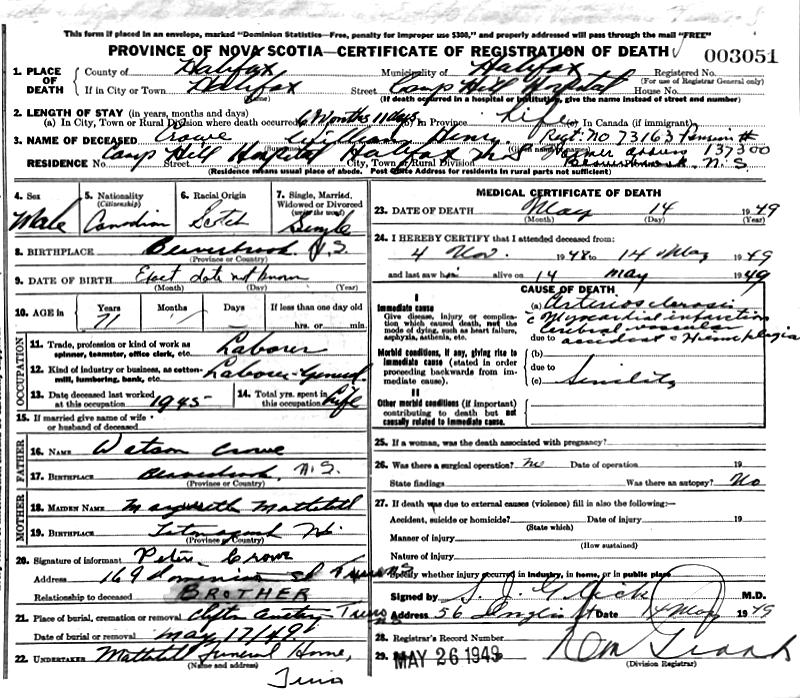 This form if placed in an envelope, marked "Dominion Statistics—Free, penalty for improper use $300," and properly addressed will pass through the mail "FREE"
PROVINCE OF NOVA SCOTIA—CERTIFICATE OF REGISTRATION OF DEATH
003051
1. PLACE OF DEATH
County of Halifax Municipality of Halifax Registered No.
(For use of Registrar General only)
If in City or Town Halifax Street Camp Hill Hospital House No.
(Name) (If death occurred in a hospital or institution, give the name instead of street and number)
2. LENGTH OF STAY (in years, months and days)
(a) In City, Town or Rural Division where death occurred 6 Months 11 days (b) in Province Life (c) In Canada (if immigrant)
3. NAME OF DECEASED Crowe William Henry Regt. No 73163 Pension # 137300
RESIDENCE No. Camp Hill Hospital Street Halifax N S City, Town or Rural Division Former address Beaverbrook, N.S.
(Residence means usual place of abode. Post Office Address for residents in rural parts not sufficient)
4. Sex Male
5. Nationality (Citizenship) Canadian
6. Racial Origin Scotch
7. Single, Married, Widowed or Divorced (write the word) Single
8. BIRTHPLACE Beaverbrook N.S.
(Province or Country)
9. DATE OF BIRTH Exact date not known
(Month) (Day) (Year)
10. AGE in Years 71 Months Days If less than one day old
hrs. or min.
OCCUPATION
11. Trade, profession or kind of work as spinner, teamster, office clerk, etc. Laborer
12. Kind of industry or business, as cotton-mill, lumbering, bank, etc. Laborer-General
13. Date deceased last worked at this occupation 1945
14. Total yrs. spent in this occupation Life
15. If married give name of wife or husband of deceased
FATHER
16. NAME Watson Crowe
17. BIRTHPLACE Beaverbrook, N.S.
(Province or Country)
MOTHER
18. MAIDEN NAME
19. BIRTHPLACE
(Province or Country)
20. Signature of informant Peter Crowe
Address 169 Dominion St Truro NS
Relationship to deceased BROTHER
21. Place of burial, cremation or removal Clifton Cemetery Truro NS
Date of burial or removal May 17/49
22. UNDERTAKER Funeral Home,
(Name and address)
Truro
MEDICAL CERTIFICATE OF DEATH
23. DATE OF DEATH May 14 1949
(Month) (Day) (Year)
24. I HEREBY CERTIFY that I attended deceased from:
4 Nov. 1948 to 14 May 1949
and last saw him alive on 14 May 1949
CAUSE OF DEATH
I
Immediate cause
Give disease, injury or complication which caused death, not the mode of dying, such as heart failure, asphyxia, asthenia, etc.
(a) Arteriosclerosis
c Myocardial infarction
cerebral vascular
due to accident & Hemiplegia
Morbid conditions, if any, giving rise to immediate cause (stated in order proceeding backwards from immediate cause).
(b)
due to
(c) Senility
II
Other morbid conditions (if important) contributing to death but not causally related to immediate cause.
25. If a woman, was the death associated with pregnancy?
26. Was there a surgical operation? no Date of operation 19
State findings Was there an autopsy? No
27. If death was due to external causes (violence) fill in also the following:
Accident, suicide or homicide? Date of injury 19
(State which)
Manner of injury
(How sustained)
Nature of injury
Specify whether injury occurred in industry, in home, or in public place
Signed by S. J. M.D.
Address 56 Inglis St Date 14 May 1949
28. Registrar's Record Number
29. MAY 26 1949
(Division Registrar)